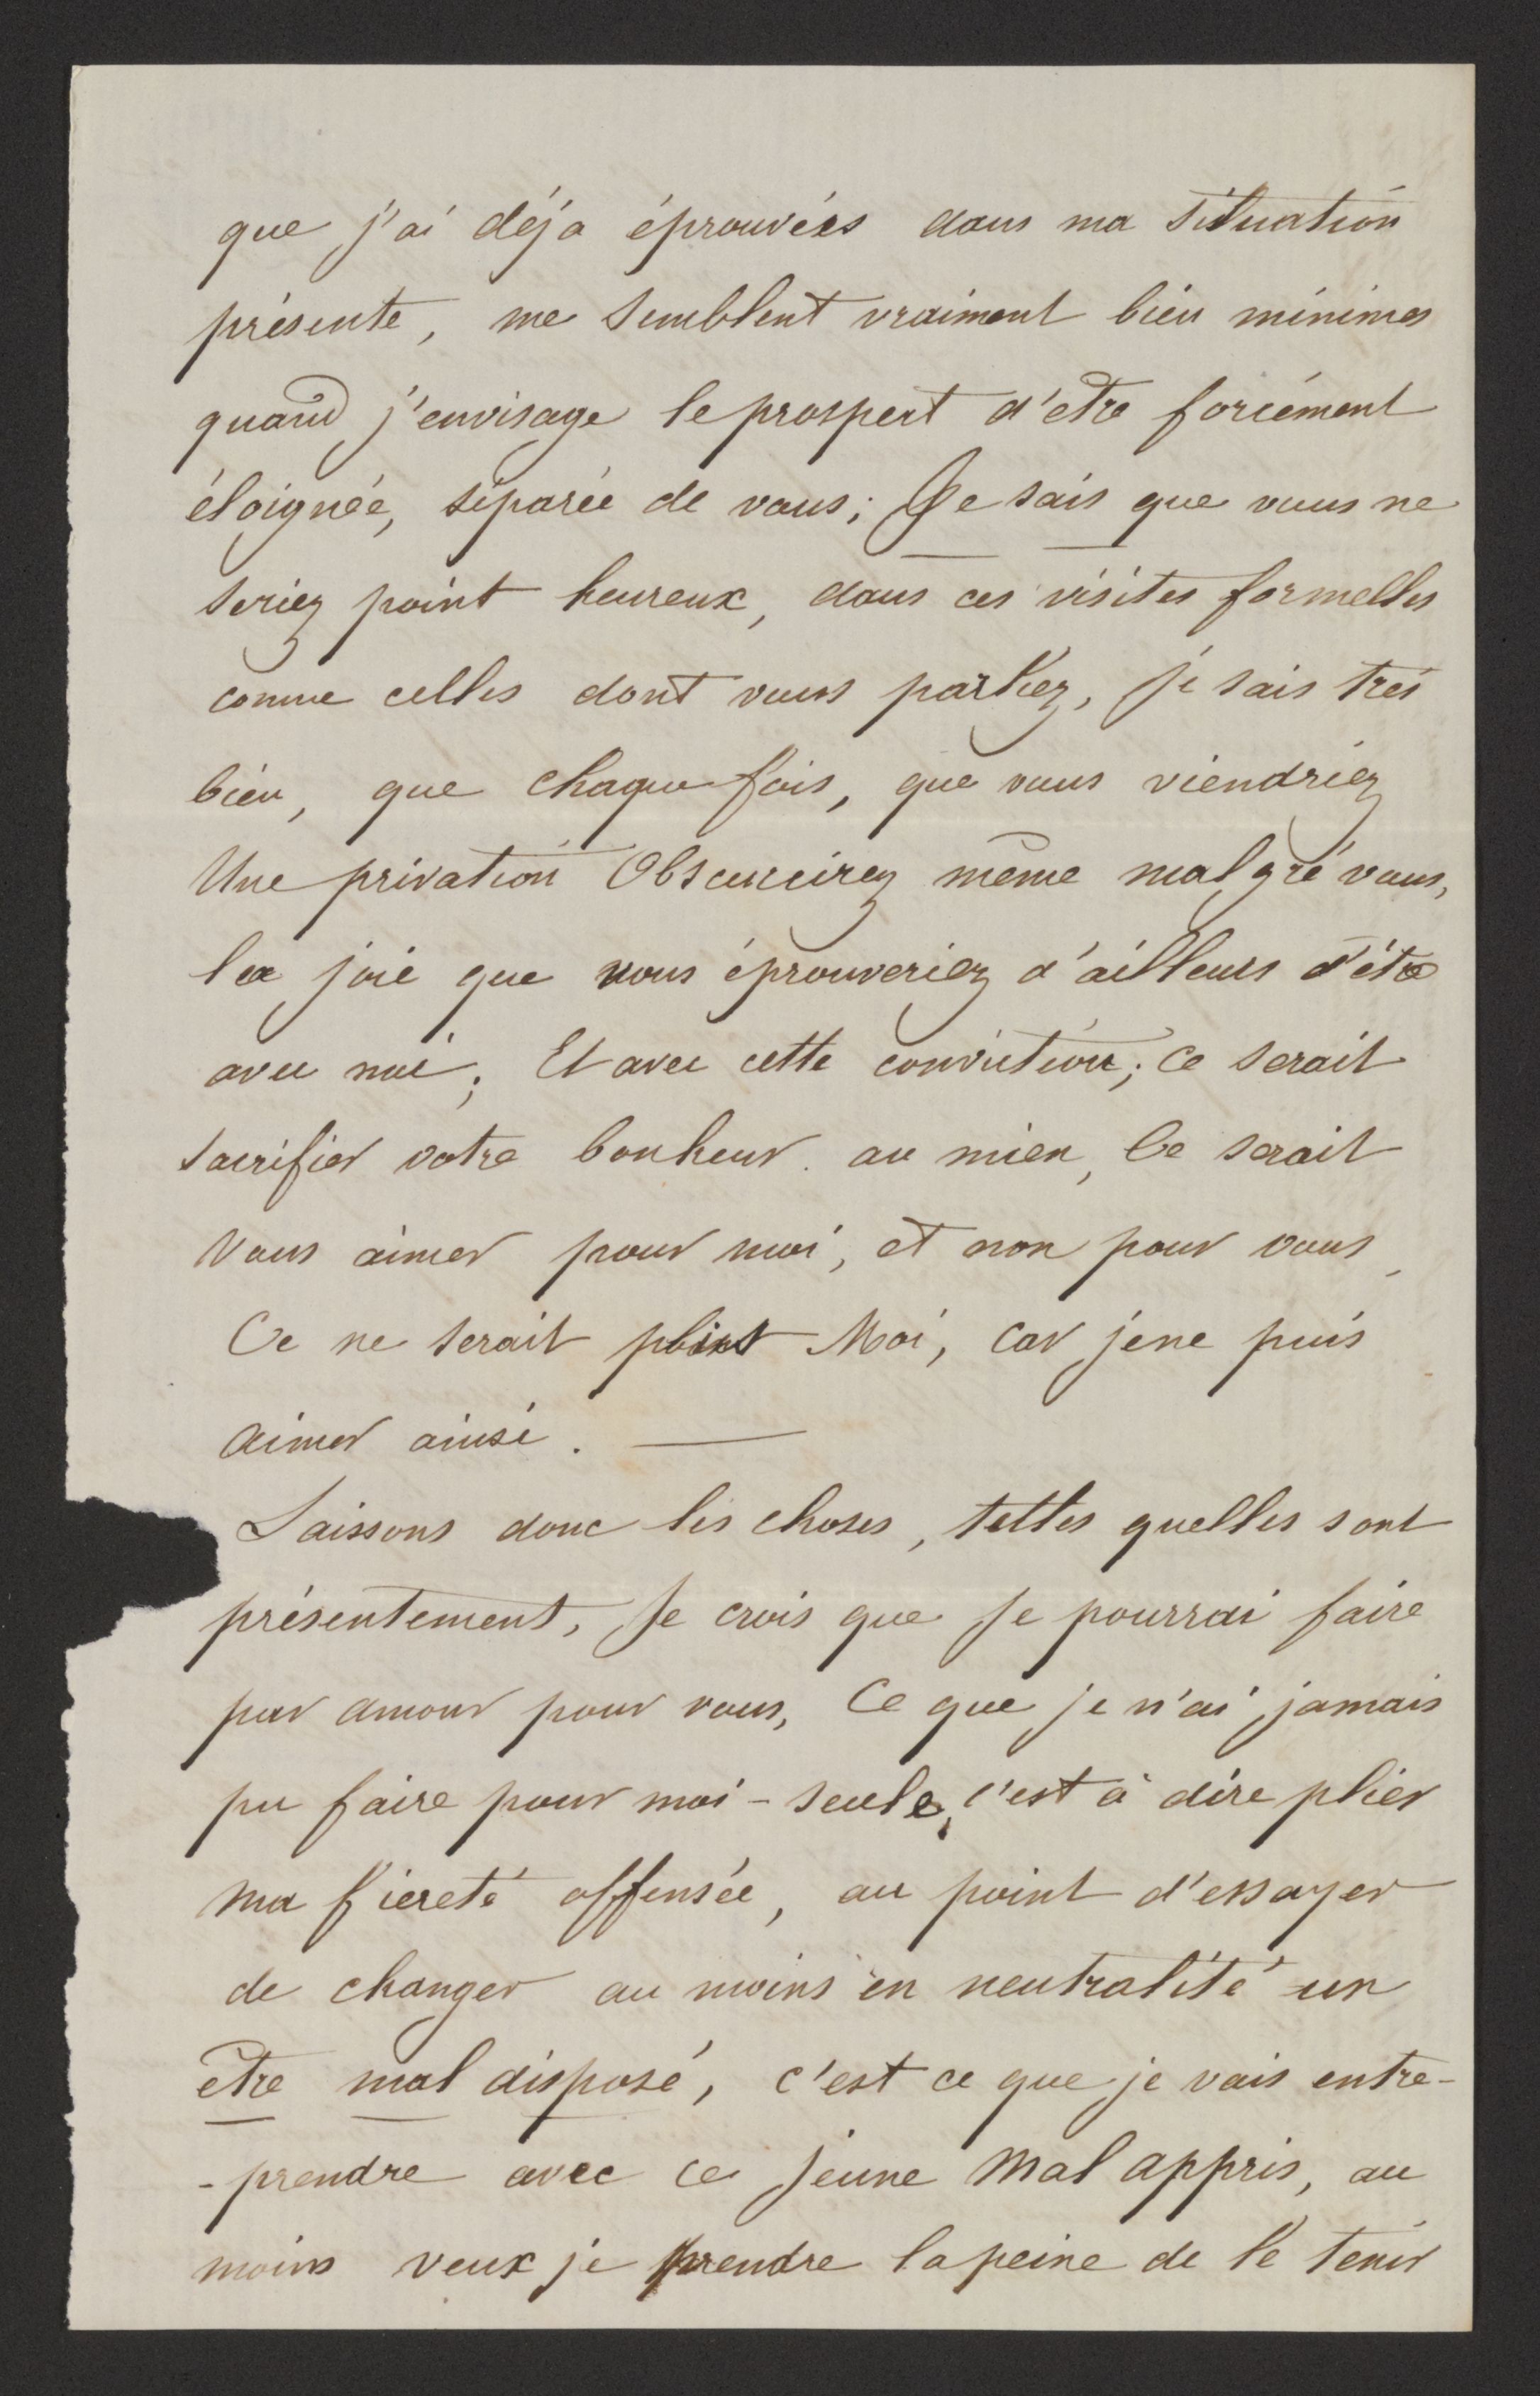 que j'ai déja éprouvées dans ma situation
présente, me semblent vraiment bien minimes
quand j'envisage le prospect d'etre forcément
éloignée, séparée de vous; Je sais que vous ne
seriez point heureux, dans ces visites formelles
comme celles dont vous parliez, je sais très
bien, que chaque fois, que vous viendriez
Une privation Obscurcirez même malgré vous,
la joie que vous éprouveriez d'ailleurs d'être
avec moi; Et avec cette conviction; ce serait
sacrifier votre bonheur au mien, Ce serait
Vous aimer pour moi, et non pour vous,
Ce ne serait point Moi, car je ne puis
aimer ainsi. —
Laissons donc les choses, telles quelles sont
présentement, Je crois que Je pourrai faire
par amour pour vous, Ce que je n'ai jamais
pu faire pour moi-seule, c'est à dire plier
Ma fiereté offensée, au point d'essayer
de changer au moins en neutralité un
être mal disposé, c'est ce que je vais entre-
-prendre avec ce jeune Mal appris, au
moins veux je prendre la peine de le tenir